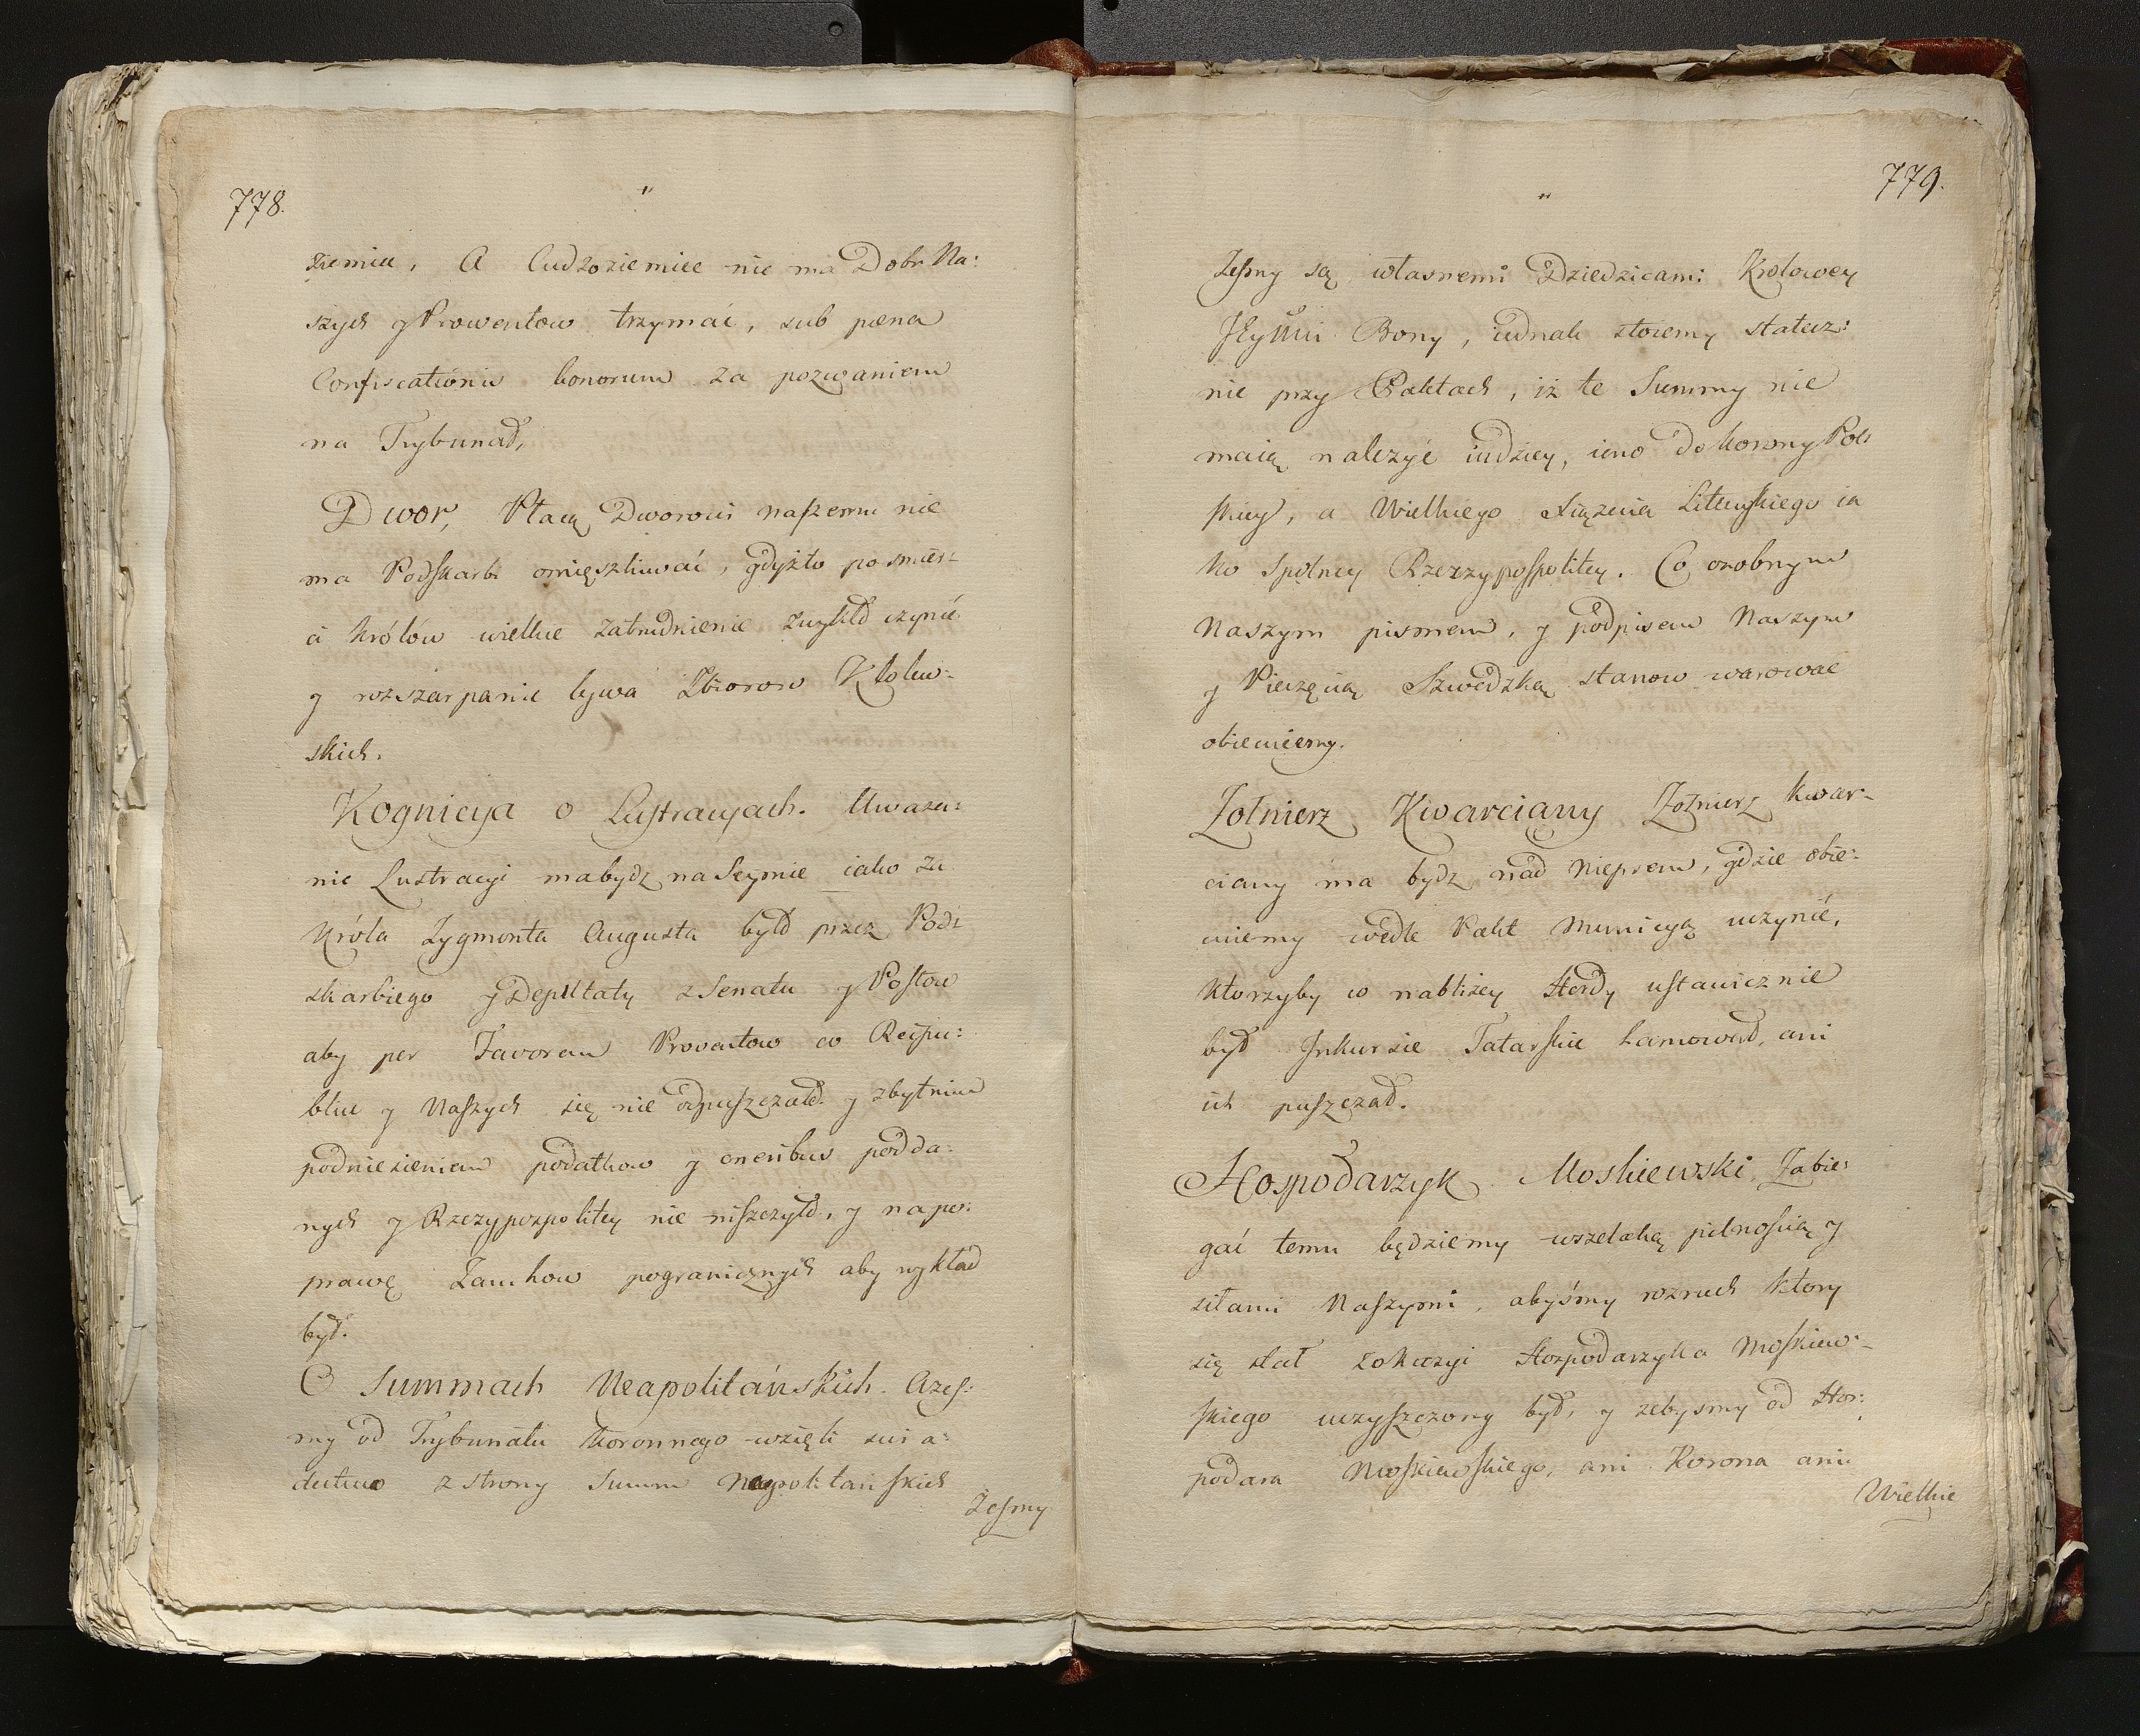 778.
"
ziemiec, A Cudzoziemiec nie ma Dobr Na:
szych y Prowentow trzymać, sub pæna
Confiscationis bonorum za pozwaniem
na Trybunał,
Dwor, Płacą Dworowi naszemu nie
ma Podskarbi omięszkiwać, gdyżto po smier-
ci Królów wielkie zatrudnienie zwykło czynić
y rozszarpanie bywa Zbiorow Krolew-
skich.
Kognicya o Lustracyach. Uważe:
nie Lustracyi ma bydz na Seymie iako za
Króla Zygmonta Augusta było przez Pod:
skarbiego y Deputaty z Senatu y Posłow
aby per Favorem Proventow co Reipu:
blicæ y Naszych się nie odpuszczało. y zbytnim
podniesieniem podatkow y oneribus podda:
nych y Rzeczypospolitey nie niszczyło, y na po:
prawę Zamkow pogranicznych aby wykład
był.
O Summach Neapolitańskich. Czeſ:
my od Trybunału Koronnego wzięli swia:
dectwo z strony Summ Neapolitańskich
Żeſmy
779.
"
Żeſmy są własnemi Dziedzicami Krolowey
JEyMci Bony, iednak stoiemy statecz:
nie przy Paktach, iż te Summy nie
maią należyć indziey, ieno do Korony Pol:
skiey, a Wielkiego Xięzcia Litewskiego ia
ko Spolney Rzeczypospolitey. Co osobnym
Naszym pismem, y podpisem Naszym
y Pieczęcią Szwedzką stanow warować
obiecuiemy.
Zołnierz Kwarciany Zołnierz Kwar-
ciany ma bydz nad Nieprem, gdzie obie:
cuiemy wedle Pakt Municyą uczynić,
Ktorzyby w nabliżey Hordy ustawicznie
był Inkursie Tatarskie hamował, ani
ich puszczał.
Hospodarzyk Moskiewski, Zabie:
gać temu będziemy wszelaką pilnością y
siłami Naszymi, abyśmy rozruch ktory
się stał z okazyi Hospodarzyka Moskiew-
skiego uczyszczony był, y zebysmy od Hos:
podara Moskiewskiego, ani Korona ani
Wielkie